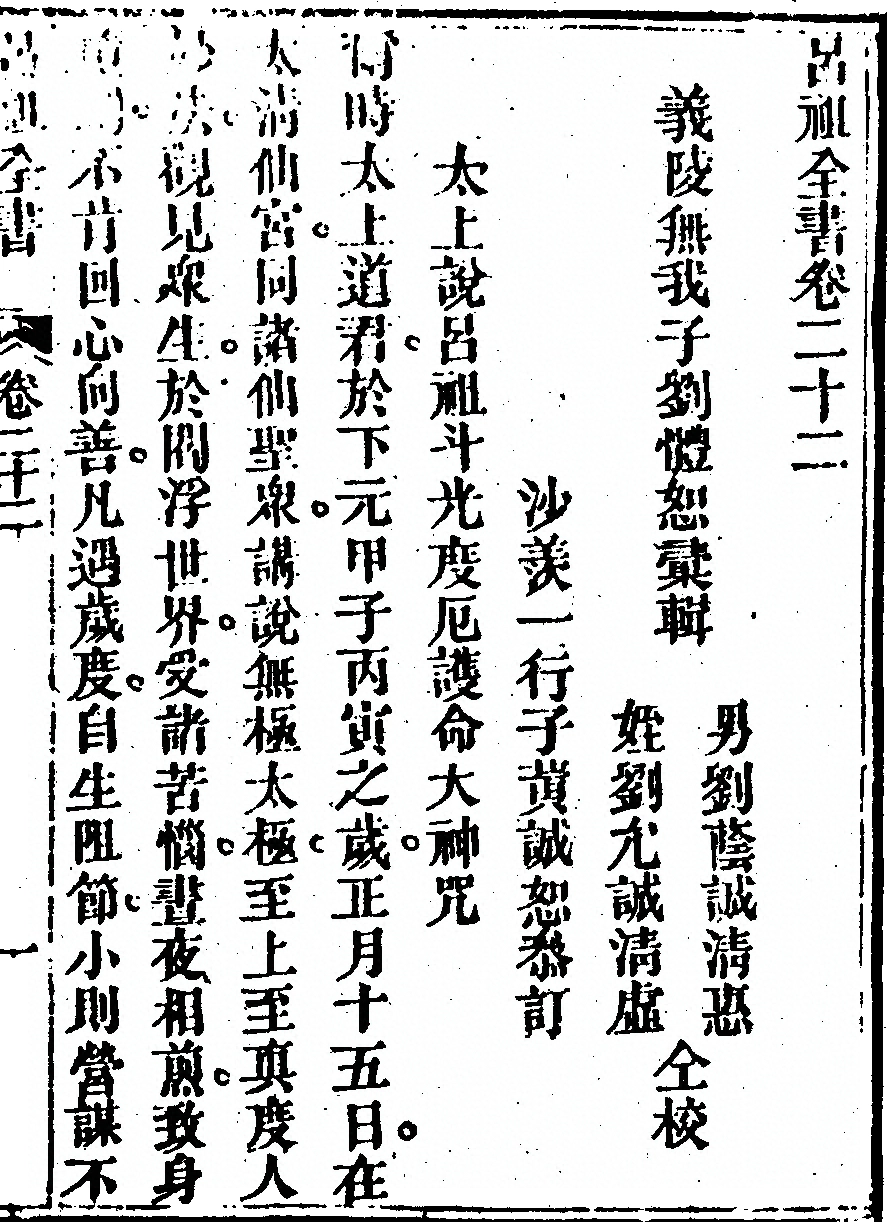 呂祖全書卷二十二
義陵無我子劉體恕彙輯
男劉蔭誠清惠
姪劉允誠清虛
仝校
沙羨一行子黃誠恕恭訂
太上說呂祖斗光度厄護命大神咒
爾時太上道君於下元甲子丙寅之歲正月十五日在
太清仙宮同諸仙聖衆講說無極太極至上至真度人
妙法觀見衆生於閻浮世界受諸苦惱晝夜相煎致身
不肯回心向善凡遇歲度自生阻節小則營謀不
呂祖全書 卷二十二 一